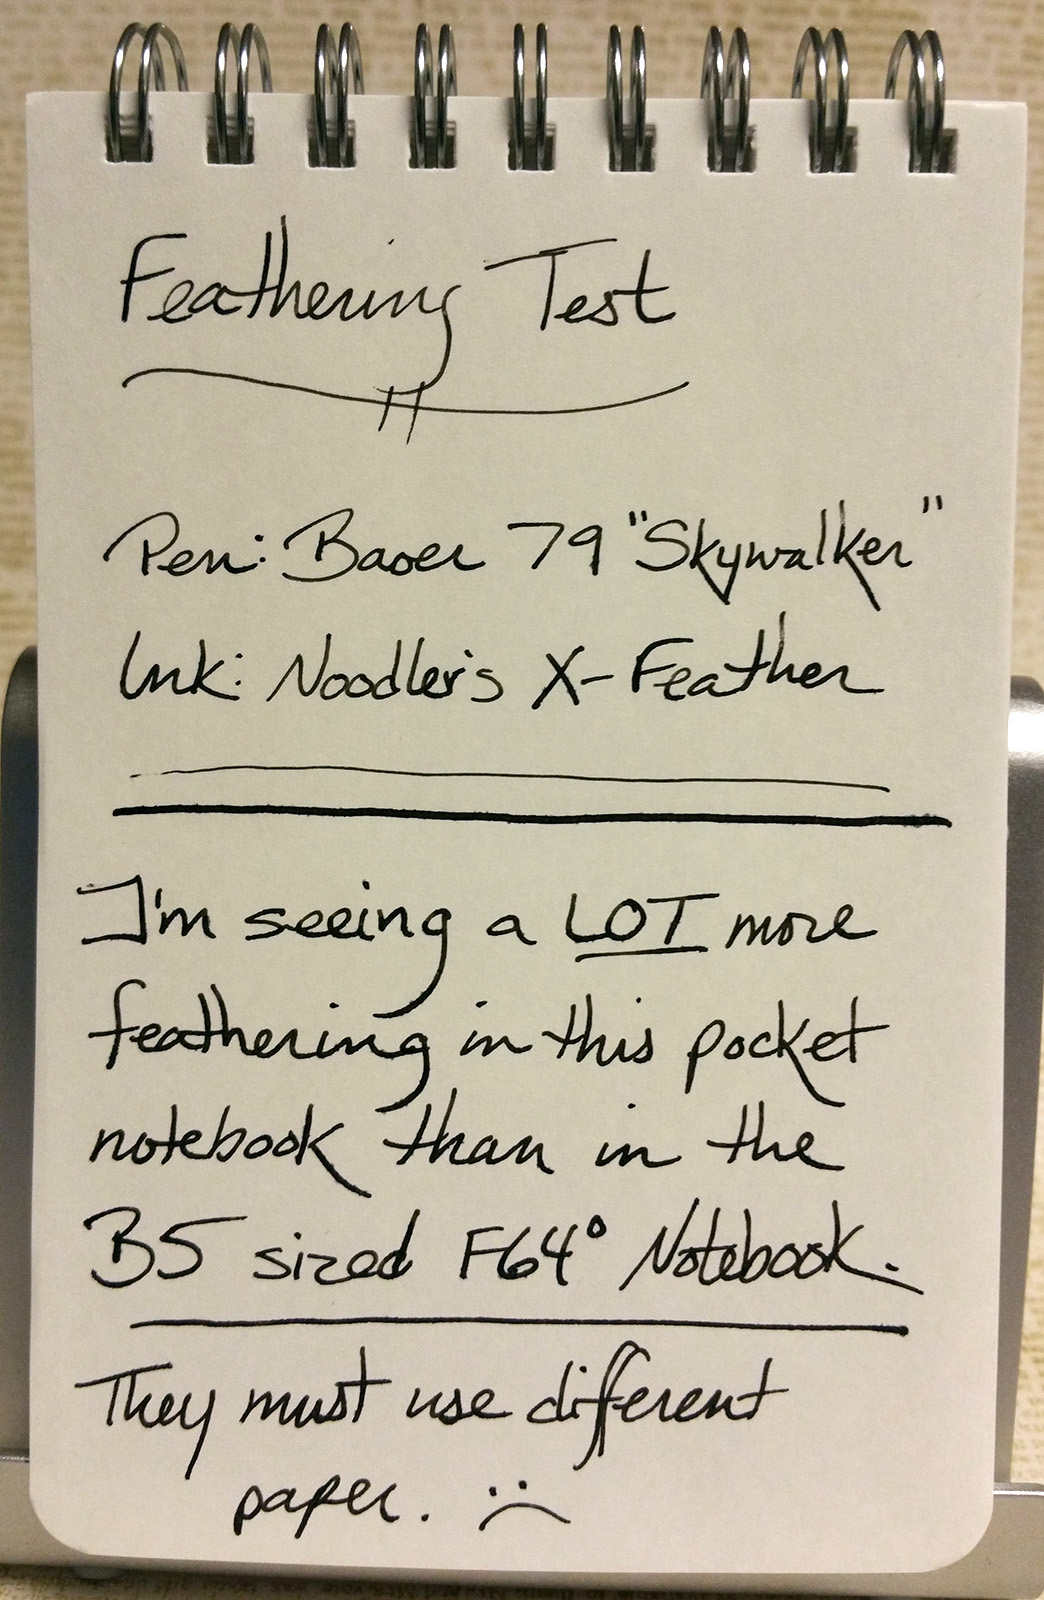 Feathering Test
Pen: Baoer 79 "Skywalker"
Ink: Noodler's X-Feather
I'm seeing a LOT more
feathering in this pocket
notebook than in the
B5 sized F64° Notebook.
They must use different
paper. :(